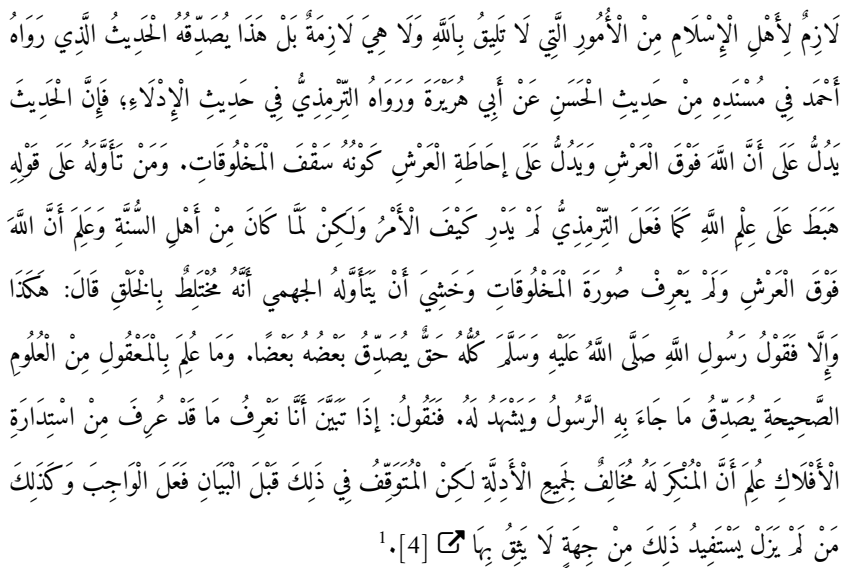 لَازِمٌ لِأَهْلِ الْإِسْلَامِ مِنْ الْأُمُورِ الَّتِي لَا تَلِيقُ بِاَللَّهِ وَلَا هِيَ لَازِمَةٌ بَلْ هَذَا يُصَدِّقُهُ الْحَدِيثُ الَّذِي رَوَاهُ
أَحْمَد فِي مُسْنَدِهِ مِنْ حَدِيثِ الْحَسَنِ عَنْ أَبِي هُرَيْرَةَ وَرَوَاهُ التِّرْمِذِيُّ فِي حَدِيثِ الْإِدْلَاءِ؛ فَإِنَّ الْحَدِيثَ
يَدُلُّ عَلَى أَنَّ اللَّهَ فَوْقَ الْعَرْشِ وَيَدُلُّ عَلَى إحَاطَةِ الْعَرْشِ كَوْنُهُ سَقْفَ الْمَخْلُوقَاتِ. وَمَنْ تَأَوَّلَهُ عَلَى قَوْلِهِ
هَبَطَ عَلَى عِلْمِ اللَّهِ كَمَا فَعَلَ التِّرْمِذِيُّ لَمْ يَدْرِ كَيْفَ الْأَمْرُ وَلَكِنْ لَمَّا كَانَ مِنْ أَهْلِ السُّنَّةِ وَعَلِمَ أَنَّ اللَّهَ
فَوْقَ الْعَرْشِ وَلَمْ يَعْرِفْ صُورَةَ الْمَخْلُوقَاتِ وَخَشِيَ أَنْ يَتَأَوَّلَهُ الجهمي أَنَّهُ مُخْتَلِطٌ بِالْخَلْقِ قَالَ: هَكَذَا
وَإِلَّا فَقَوْلُ رَسُولِ اللَّهِ صَلَّى اللَّهُ عَلَيْهِ وَسَلَّمَ كُلُّهُ حَقٌّ يُصَدِّقُ بَعْضُهُ بَعْضًا. وَمَا عُلِمَ بِالْمَعْقُولِ مِنْ الْعُلُومِ
الصَّحِيحَةِ يُصَدِّقُ مَا جَاءَ بِهِ الرَّسُولُ وَيَشْهَدُ لَهُ. فَنَقُولُ: إذَا تَبَيَّنَ أَنَّا نَعْرِفُ مَا قَدْ عُرِفَ مِنْ اسْتِدَارَةِ
الْأَفْلَاكِ عُلِمَ أَنَّ الْمُنْكِرَ لَهُ مُخَالِفٌ لِجَمِيعِ الْأَدِلَّةِ لَكِنْ الْمُتَوَقِّفُ فِي ذَلِكَ قَبْلَ الْبَيَانِ فَعَلَ الْوَاجِبَ وَكَذَلِكَ
مَنْ لَمْ يَزَلْ يَسْتَفِيدُ ذَلِكَ مِنْ جِهَةٍ لَا يَثِقُ بِهَا [4].1